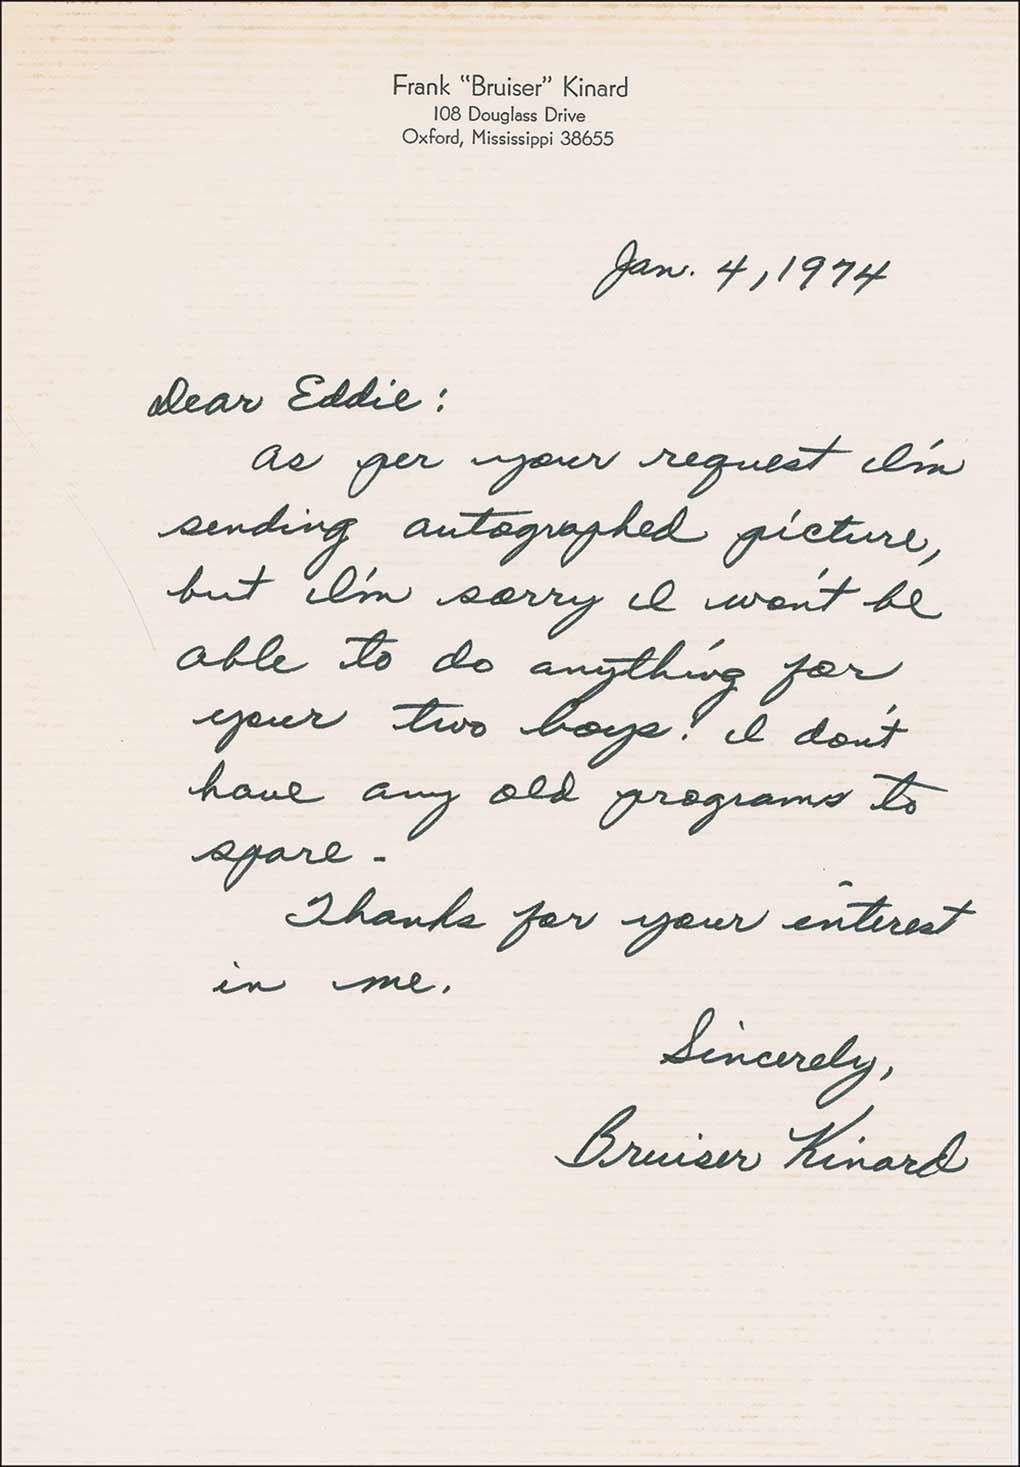 Frank "Bruiser" Kinard
108 Douglass Drive
Oxford, Mississippi 38655
Jan. 4, 1974
Dear Eddie:
As per your request I'm
sending autographed picture,
but I'm sorry I won't be
able to do anything for
your two boys! I don't
have any old programs to
spare -
Thanks for your interest
in me.
Sincerely,
Bruiser Kinard